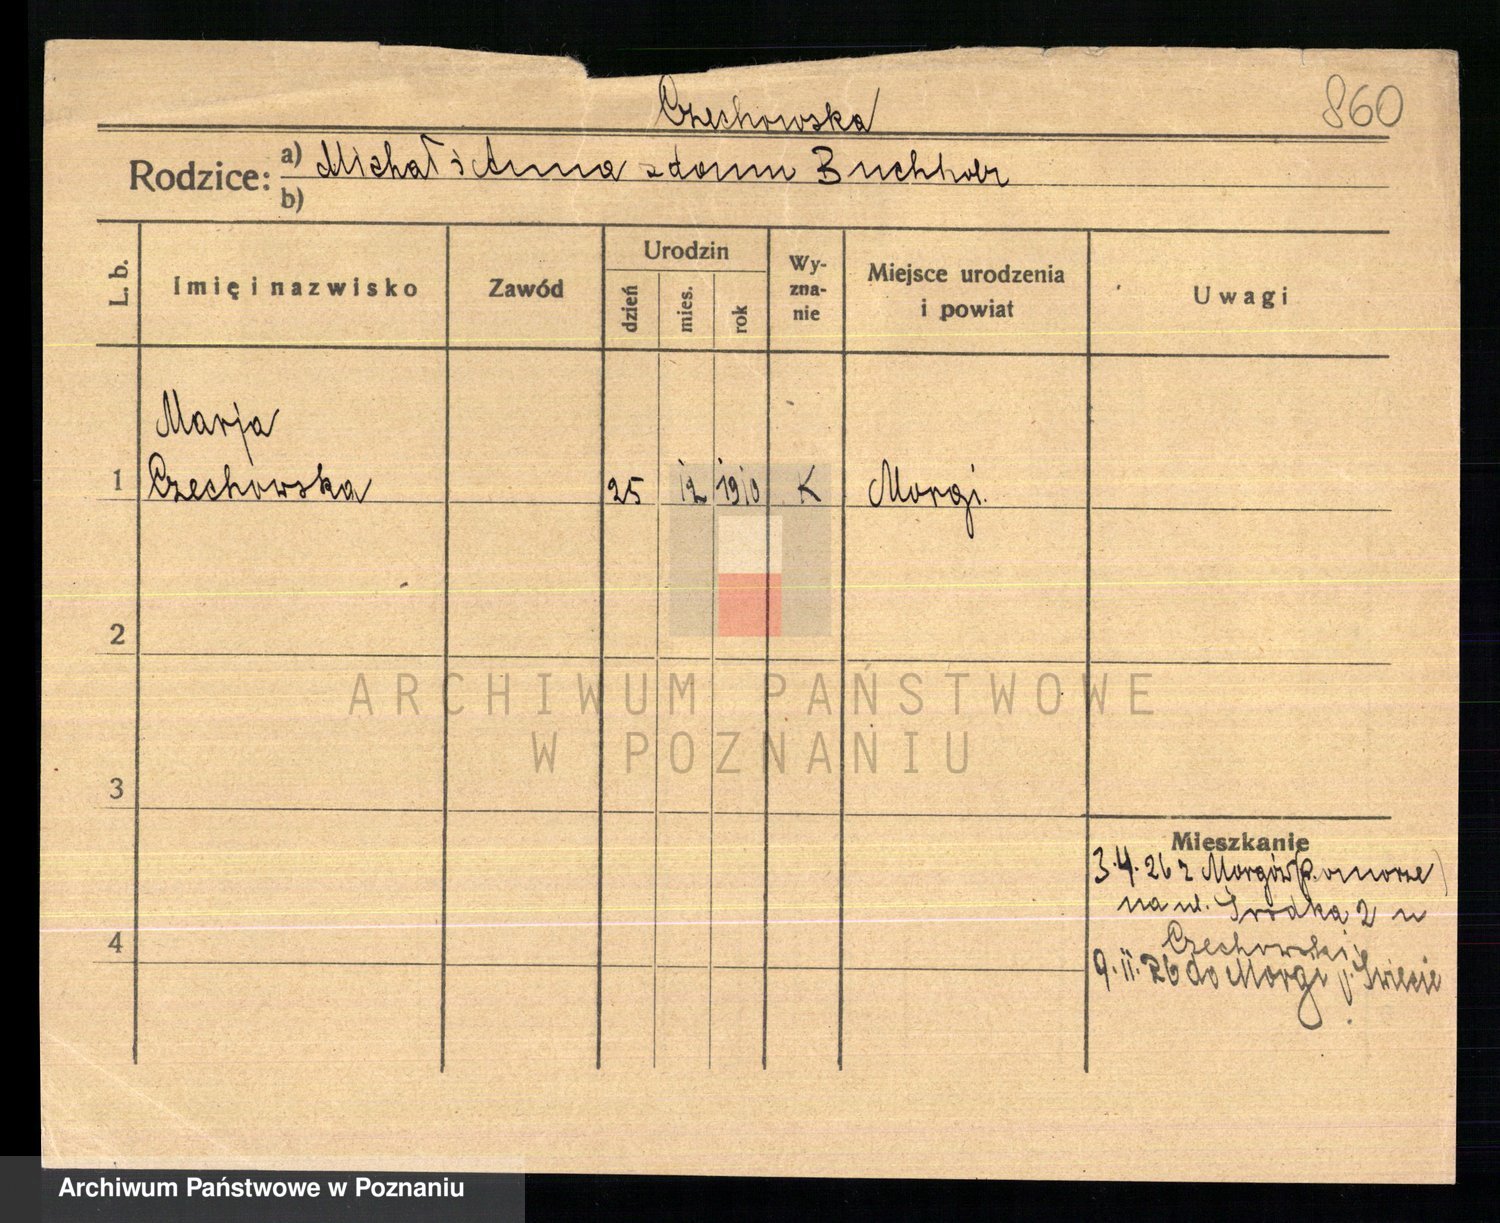 Czechowska
860
Rodzice: a) Michał i Anna z domu Buchholz
b)
L. b.
Imię i nazwisko
Zawód
Urodzin
dzień
mies.
rok
Wy-
zna-
nie
Miejsce urodzenia
i powiat
Uwagi
Marja
1 Czechowska 25 12 1910 K Morgi
2
3
4
Mieszkanie
3.4.26 z Morgów (Pomorze)
na ul. Śródka 2 u
Czechowski
9.11.26 do Morgi p. Świecie
ARCHIWUM PAŃSTWOWE
W POZNANIU
Archiwum Państwowe w Poznaniu